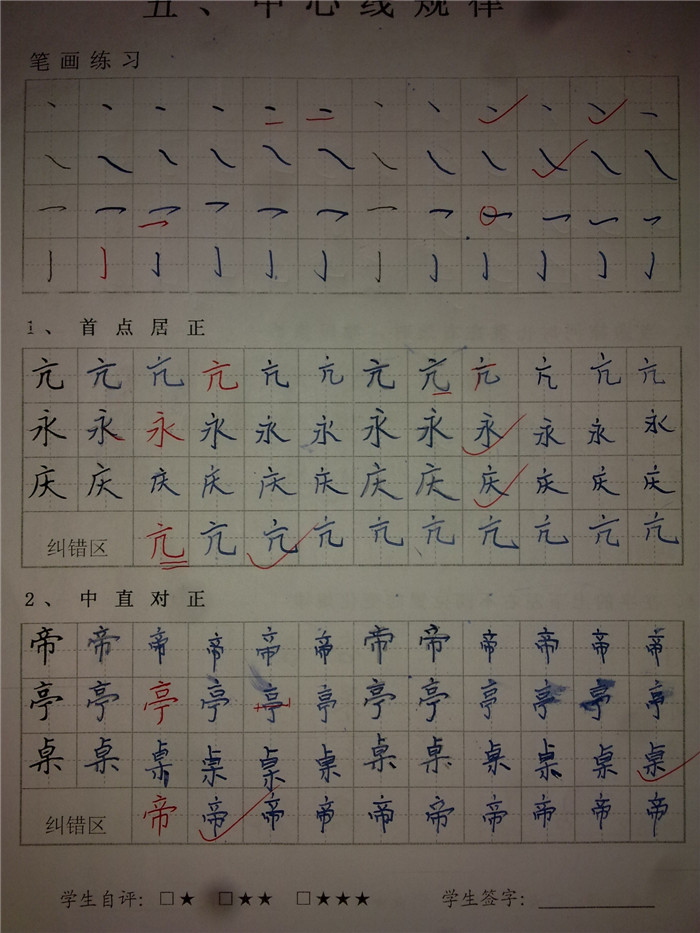 五、中心线规律
笔画练习
1、首点居正
亢 亢 亢 亢 亢 亢 亢 亢 亢 亢 亢 亢
永 永 永 永 永 永 永 永 永 永 永 永
庆 庆 庆 庆 庆 庆 庆 庆 庆 庆 庆 庆
纠错区 亢 亢 亢 亢 亢 亢 亢 亢 亢 亢
2、中直对正
帝 帝 帝 帝 帝 帝 帝 帝 帝 帝 帝 帝
亭 亭 亭 亭 亭 亭 亭 亭 亭 亭 亭 亭
桌 桌 桌 桌 桌 桌 桌 桌 桌 桌 桌 桌
纠错区 帝 帝 帝 帝 帝 帝 帝 帝 帝 帝
学生自评：□★ □★★ □★★★ 学生签字：